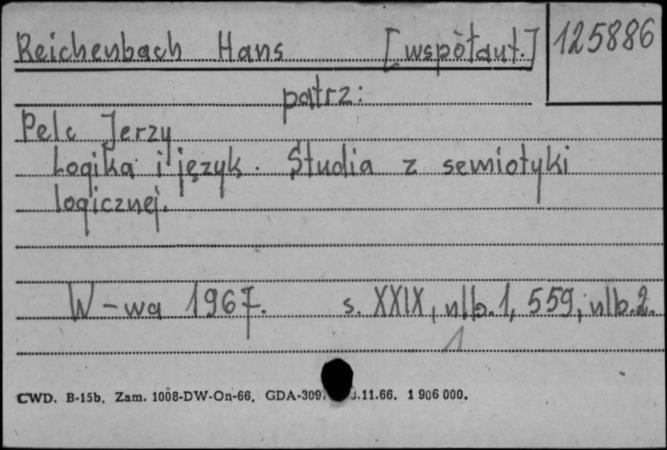 Reichenbach Hans [współaut.] 125886
patrz:
Pelc Jerzy
Logika i język. Studia z semiotyki
logicznej.
W-wa 1967. s. XXIX, nlb.1, 559, nlb.2.
1
CWD. B-15b. Zam. 1008-DW-On-66. GDA-309 .11.66. 1 906 000.